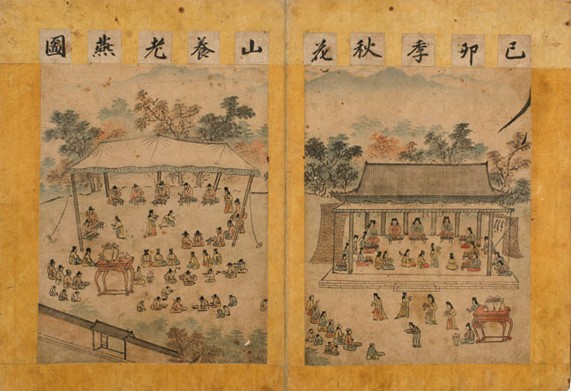 己卯季秋花山養老燕圖